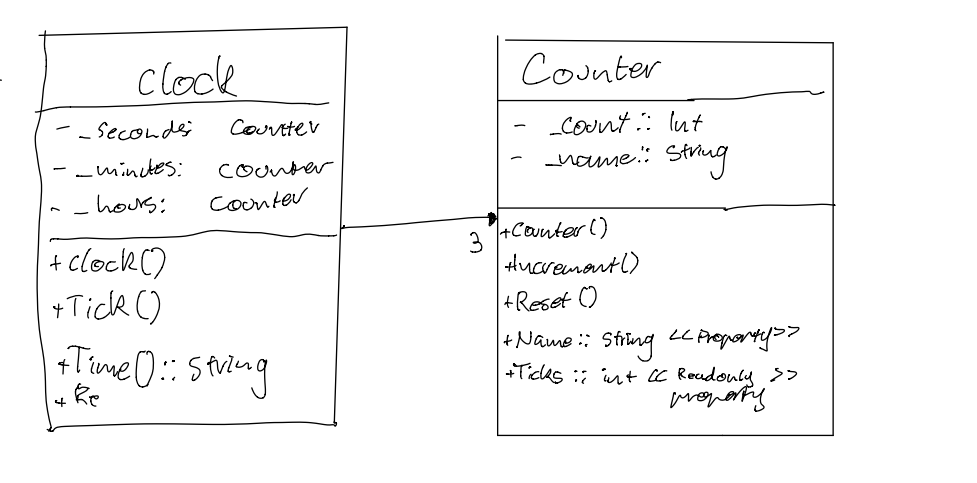 Clock
- _seconds: Counter
- _minutes: counter
- _hours: Counter
+ Clock()
+Tick()
+Time()::String
+ Re
3
Counter
- _count:: Int
- _name:: String
+Counter()
+Increment()
+Reset()
+Name:: String <<Property>>
+Ticks :: int << Readonly >>
property